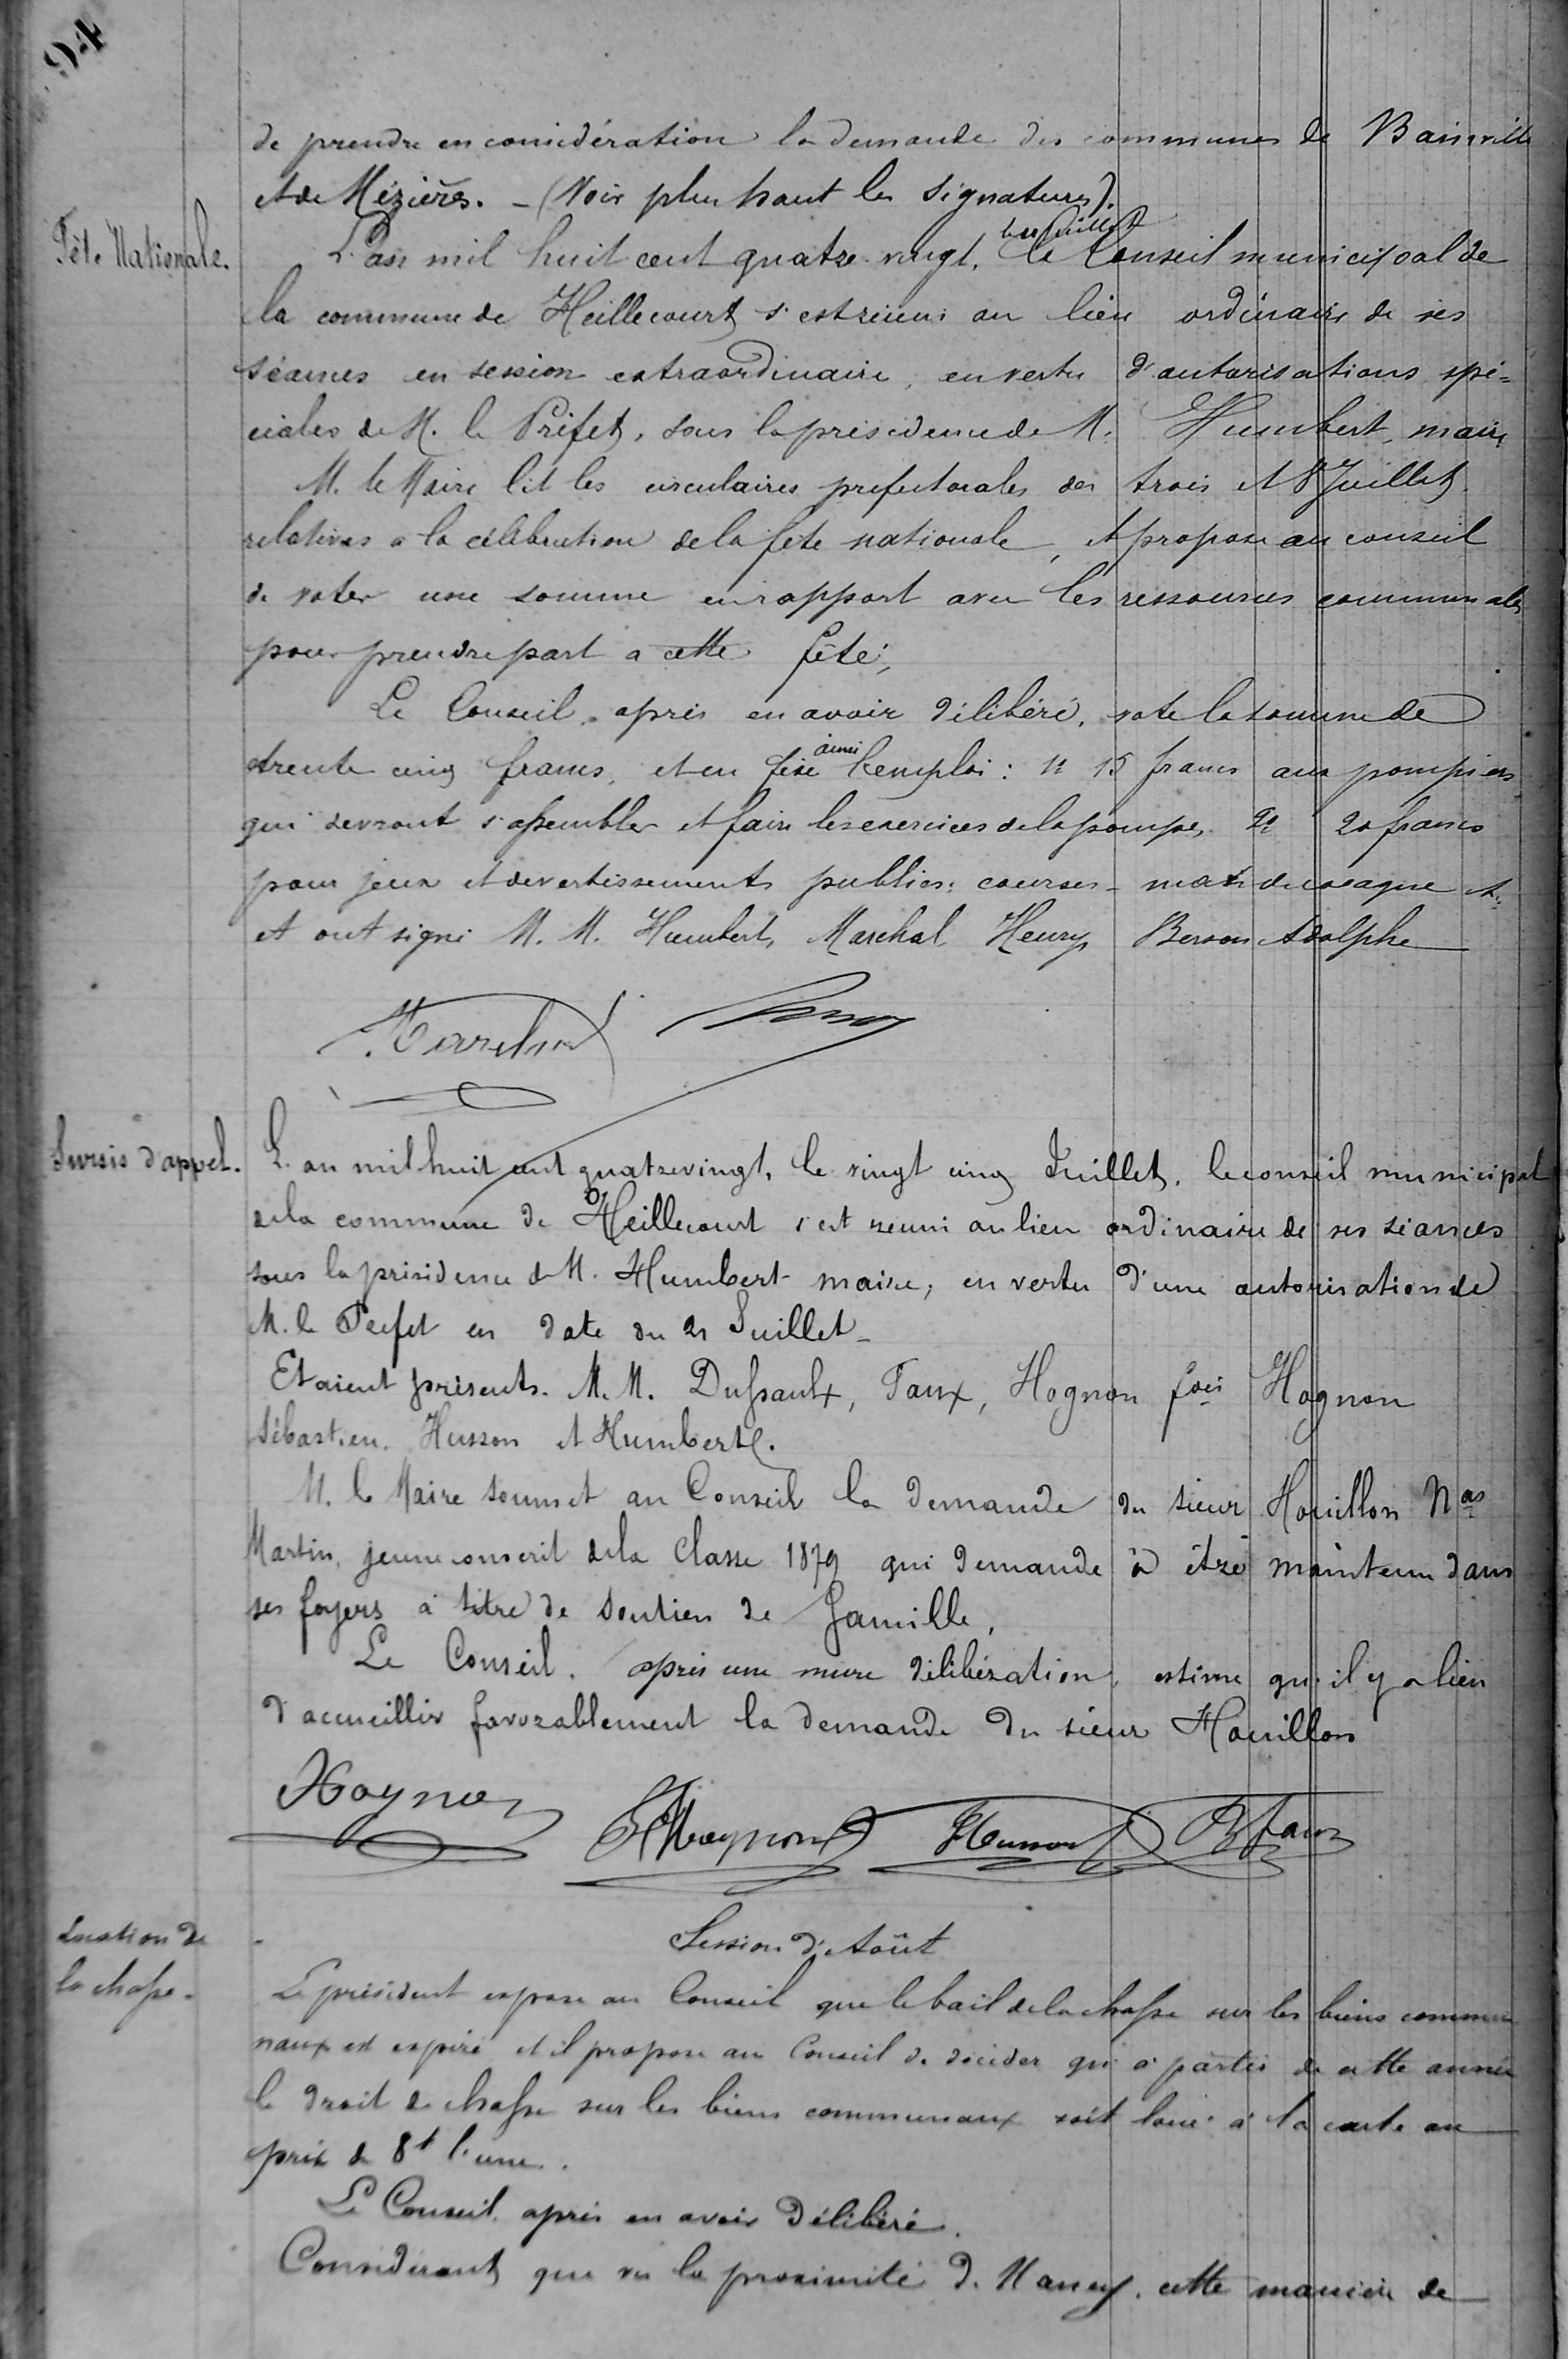 94
de prendre en considération la demande des communes de Bainville
et de Mézières. - (Voir plus haut les signatures).
Fête Nationale.
L'an mil huit cent quatre vingt, le Conseil municipal de
la commune de Heillecourt s'est réuni au lieu ordinaire de ses
séances en session extraordinaire, en vertu d'autorisations spé=
ciales de M. le Préfet, sous la présidence de M. Humbert, maire
M. le Maire lit les circulaires prefectorales des trois et 8 Juillet.
relatives a la célébration de la fete nationale, et propose au conseil
de voter une somme en rapport avec les ressources communales
pour prendre part a cette fête;
Le Conseil, après en avoir délibéré, vote la somme de
trente cinq francs, et en fixe ainsi l'emploi : 1º 15 francs aux pompiers
qui devront s'assembler et faire les exercices de la pompe, 2º 20 francs
pour jeux et divertissements publics: courses - mats de cocagne etc
et ont signé M. M. Humbert, Marchal Henry Berson Adolphe
Marchal
Sursis d'appel.
L'an mil huit cent quatre vingt, le vingt cinq Juillet, le conseil municipal
de la commune de Heillecourt s'est reuni au lieu ordinaire de ses séances
sous la présidence de M. Humbert maire, en vertu d'une autorisation de
M. le Prefet en date du 21 Juillet -
Etaient présents. M. M. Dussault, Faux, Hognon fois Hognon
Sébastien. Husson et Humbert.
M. le Maire soumet au Conseil la demande du sieur Houillon Nas
Martin, jeune conscrit de la classe 1879 qui demande à être maintenu dans
ses foyers à titre de soutien de famille,
Le Conseil, après une mure délibération, estime qu'il y a lieu
d'accueillir favorablement la demande du sieur Houillon
Hognon
Hognon Husson Faux
Location de
la chasse.
Session d'Août
Le président expose au Conseil que le bail de la chasse sur les biens commu
naux est expiré et il propose au Conseil de décider qu'à partir de cette année
le droit de chasse sur les biens communaux soit loué à la carte au
prix de 8f l'une.
Le Conseil, après en avoir délibéré.
Considérant que vu la proximité de Nancy, cette manière de